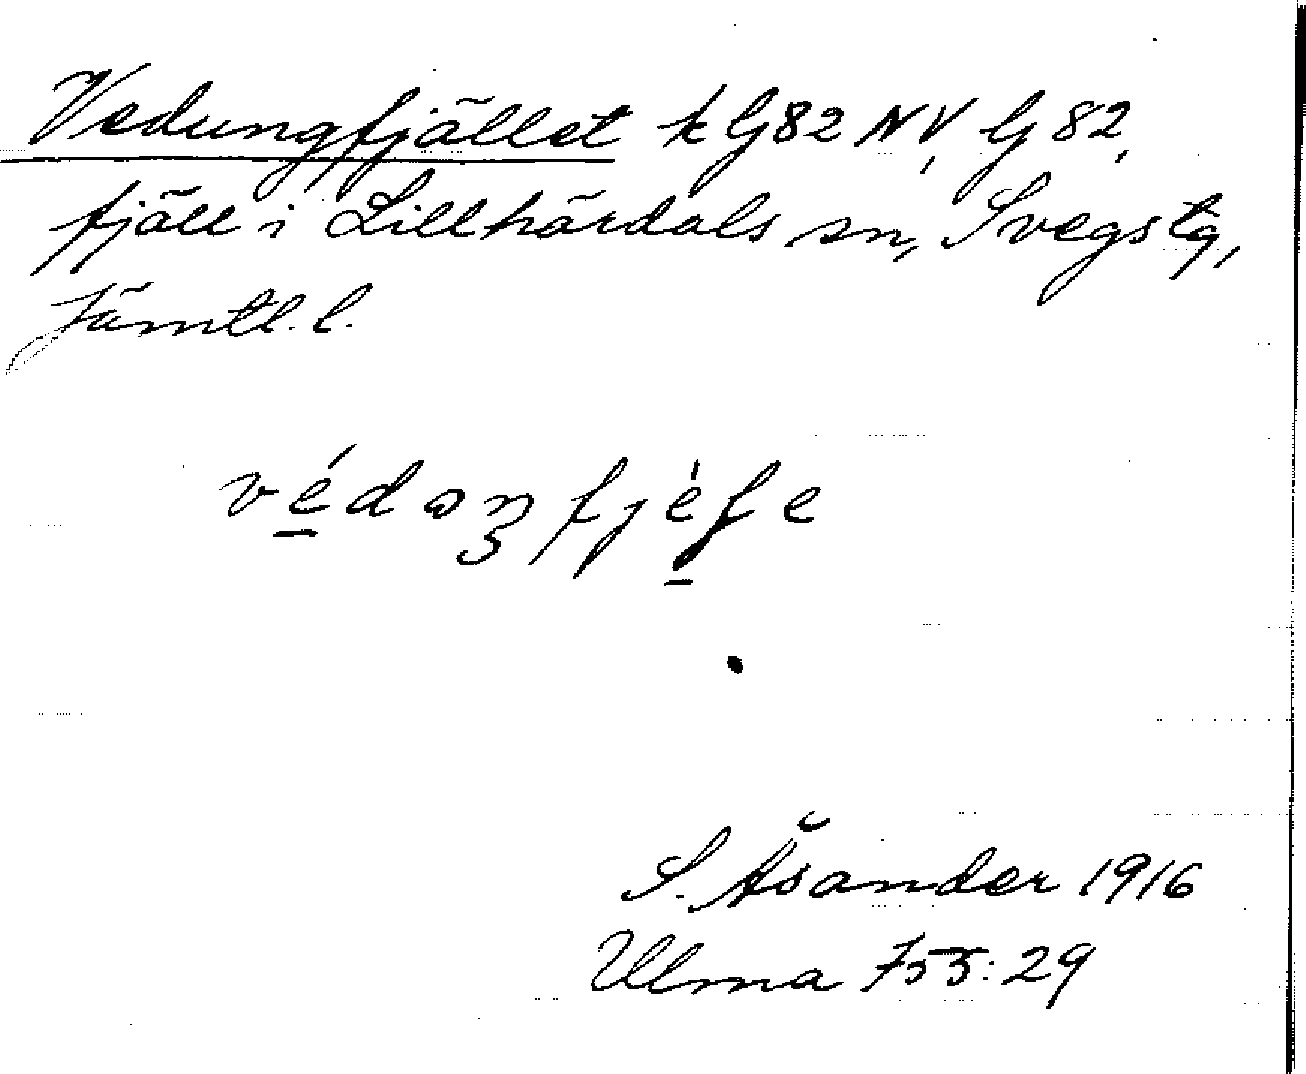 Vedungfjället k G82 NV, G 82,
fjäll i Lillhärdals sn, Svegs tg,
Jämtl. l.
S. Åsander 1916
Ulma 755:29